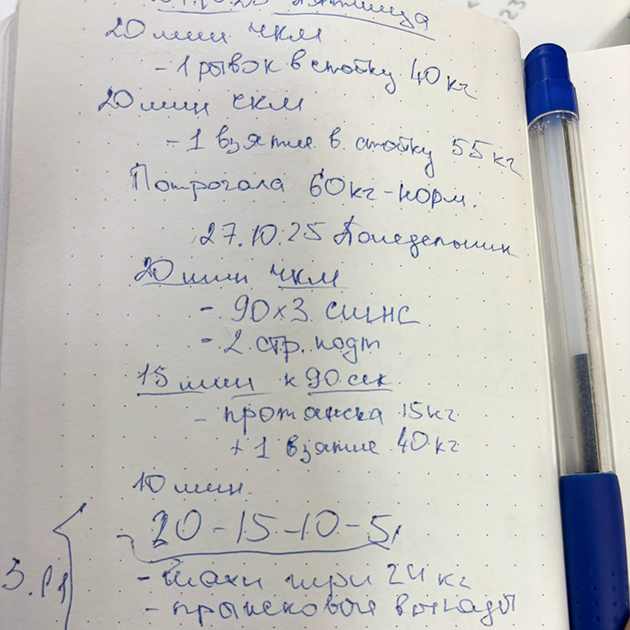 пятница
20 мин чкм
- 1 рывок в стойку 40 кг
20 мин чкм
- 1 взятие в стойку 55 кг
Потрогала 60кг - норм.
27.10.25 Понедельник
20 мин чкм
- 90х3
- 2 стр. подт
15 мин к 90 сек
- протяжка 15кг
+ 1 взятие 40 кг
10 мин.
20 - 15 - 10 - 5
- махи гири 24 кг
- прыжковые выпады
23